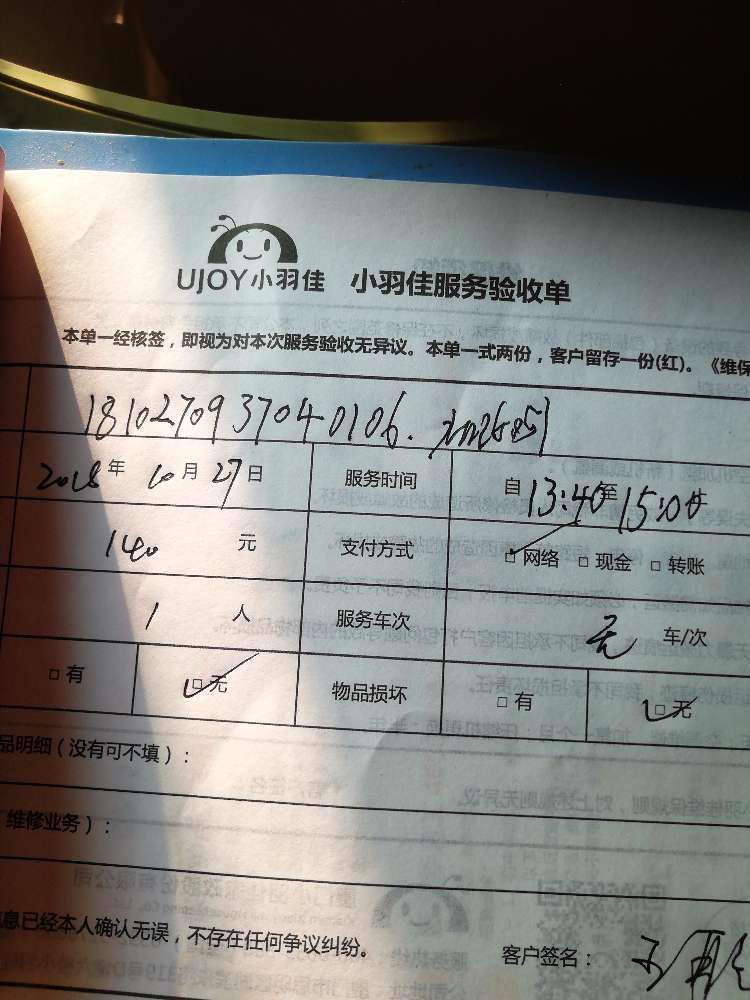 UJOY小羽佳 小羽佳服务验收单
本单一经核签，即视为对本次服务验收无异议。本单一式两份，客户留存一份(红)。《维保
181027093704 0106.
2018年 10月 27日 服务时间 自 13:40 至 15:00
140 元 支付方式 □网络 □现金 □转账
1 人 服务车次 无 车/次
□有 □无 物品损坏 □有 □无
品明细（没有可不填）：
维修业务）：
息已经本人确认无误，不存在任何争议纠纷。 客户签名：